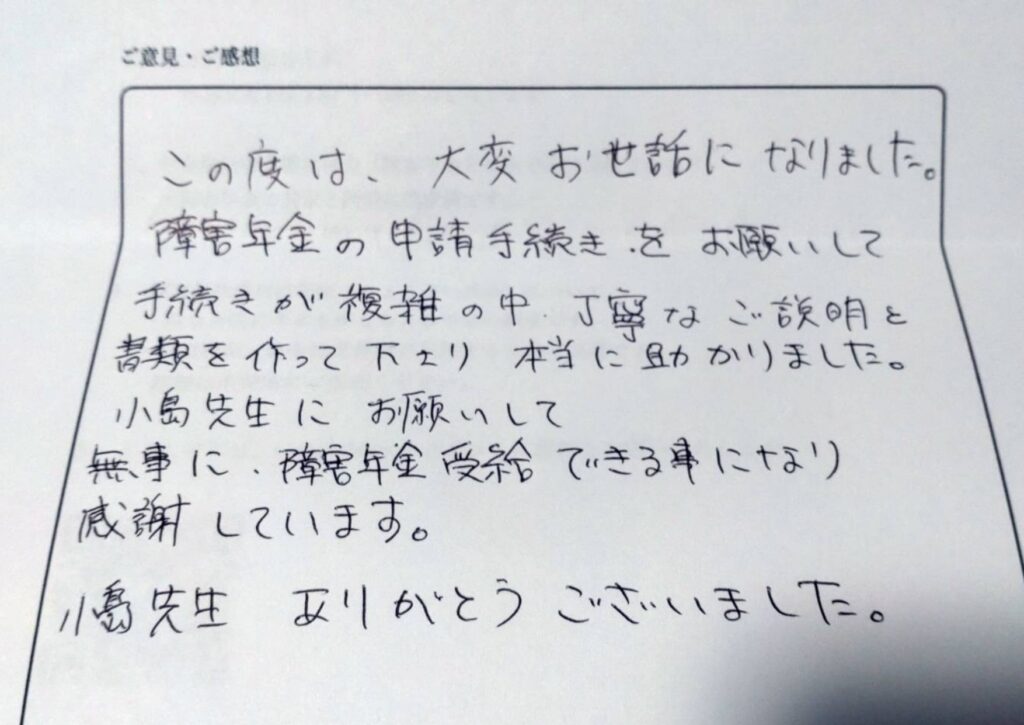 ご意見・ご感想
この度は、大変お世話になりました。
障害年金の申請手続きをお願いして
手続きが複雑の中 丁寧なご説明と
書類を作って下さり 本当に助かりました。
小島先生に お願いして
無事に、障害年金受給できる事になり
感謝しています。
小島先生 ありがとうございました。